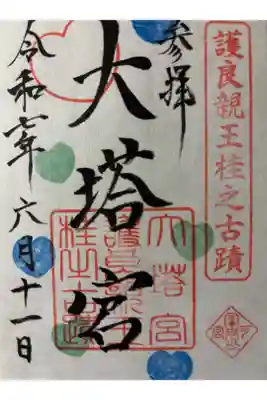 護良親王桂之古蹟
参拝
大塔宮
令和七年 六月十一日
大塔宮
護良親王
桂之古蹟